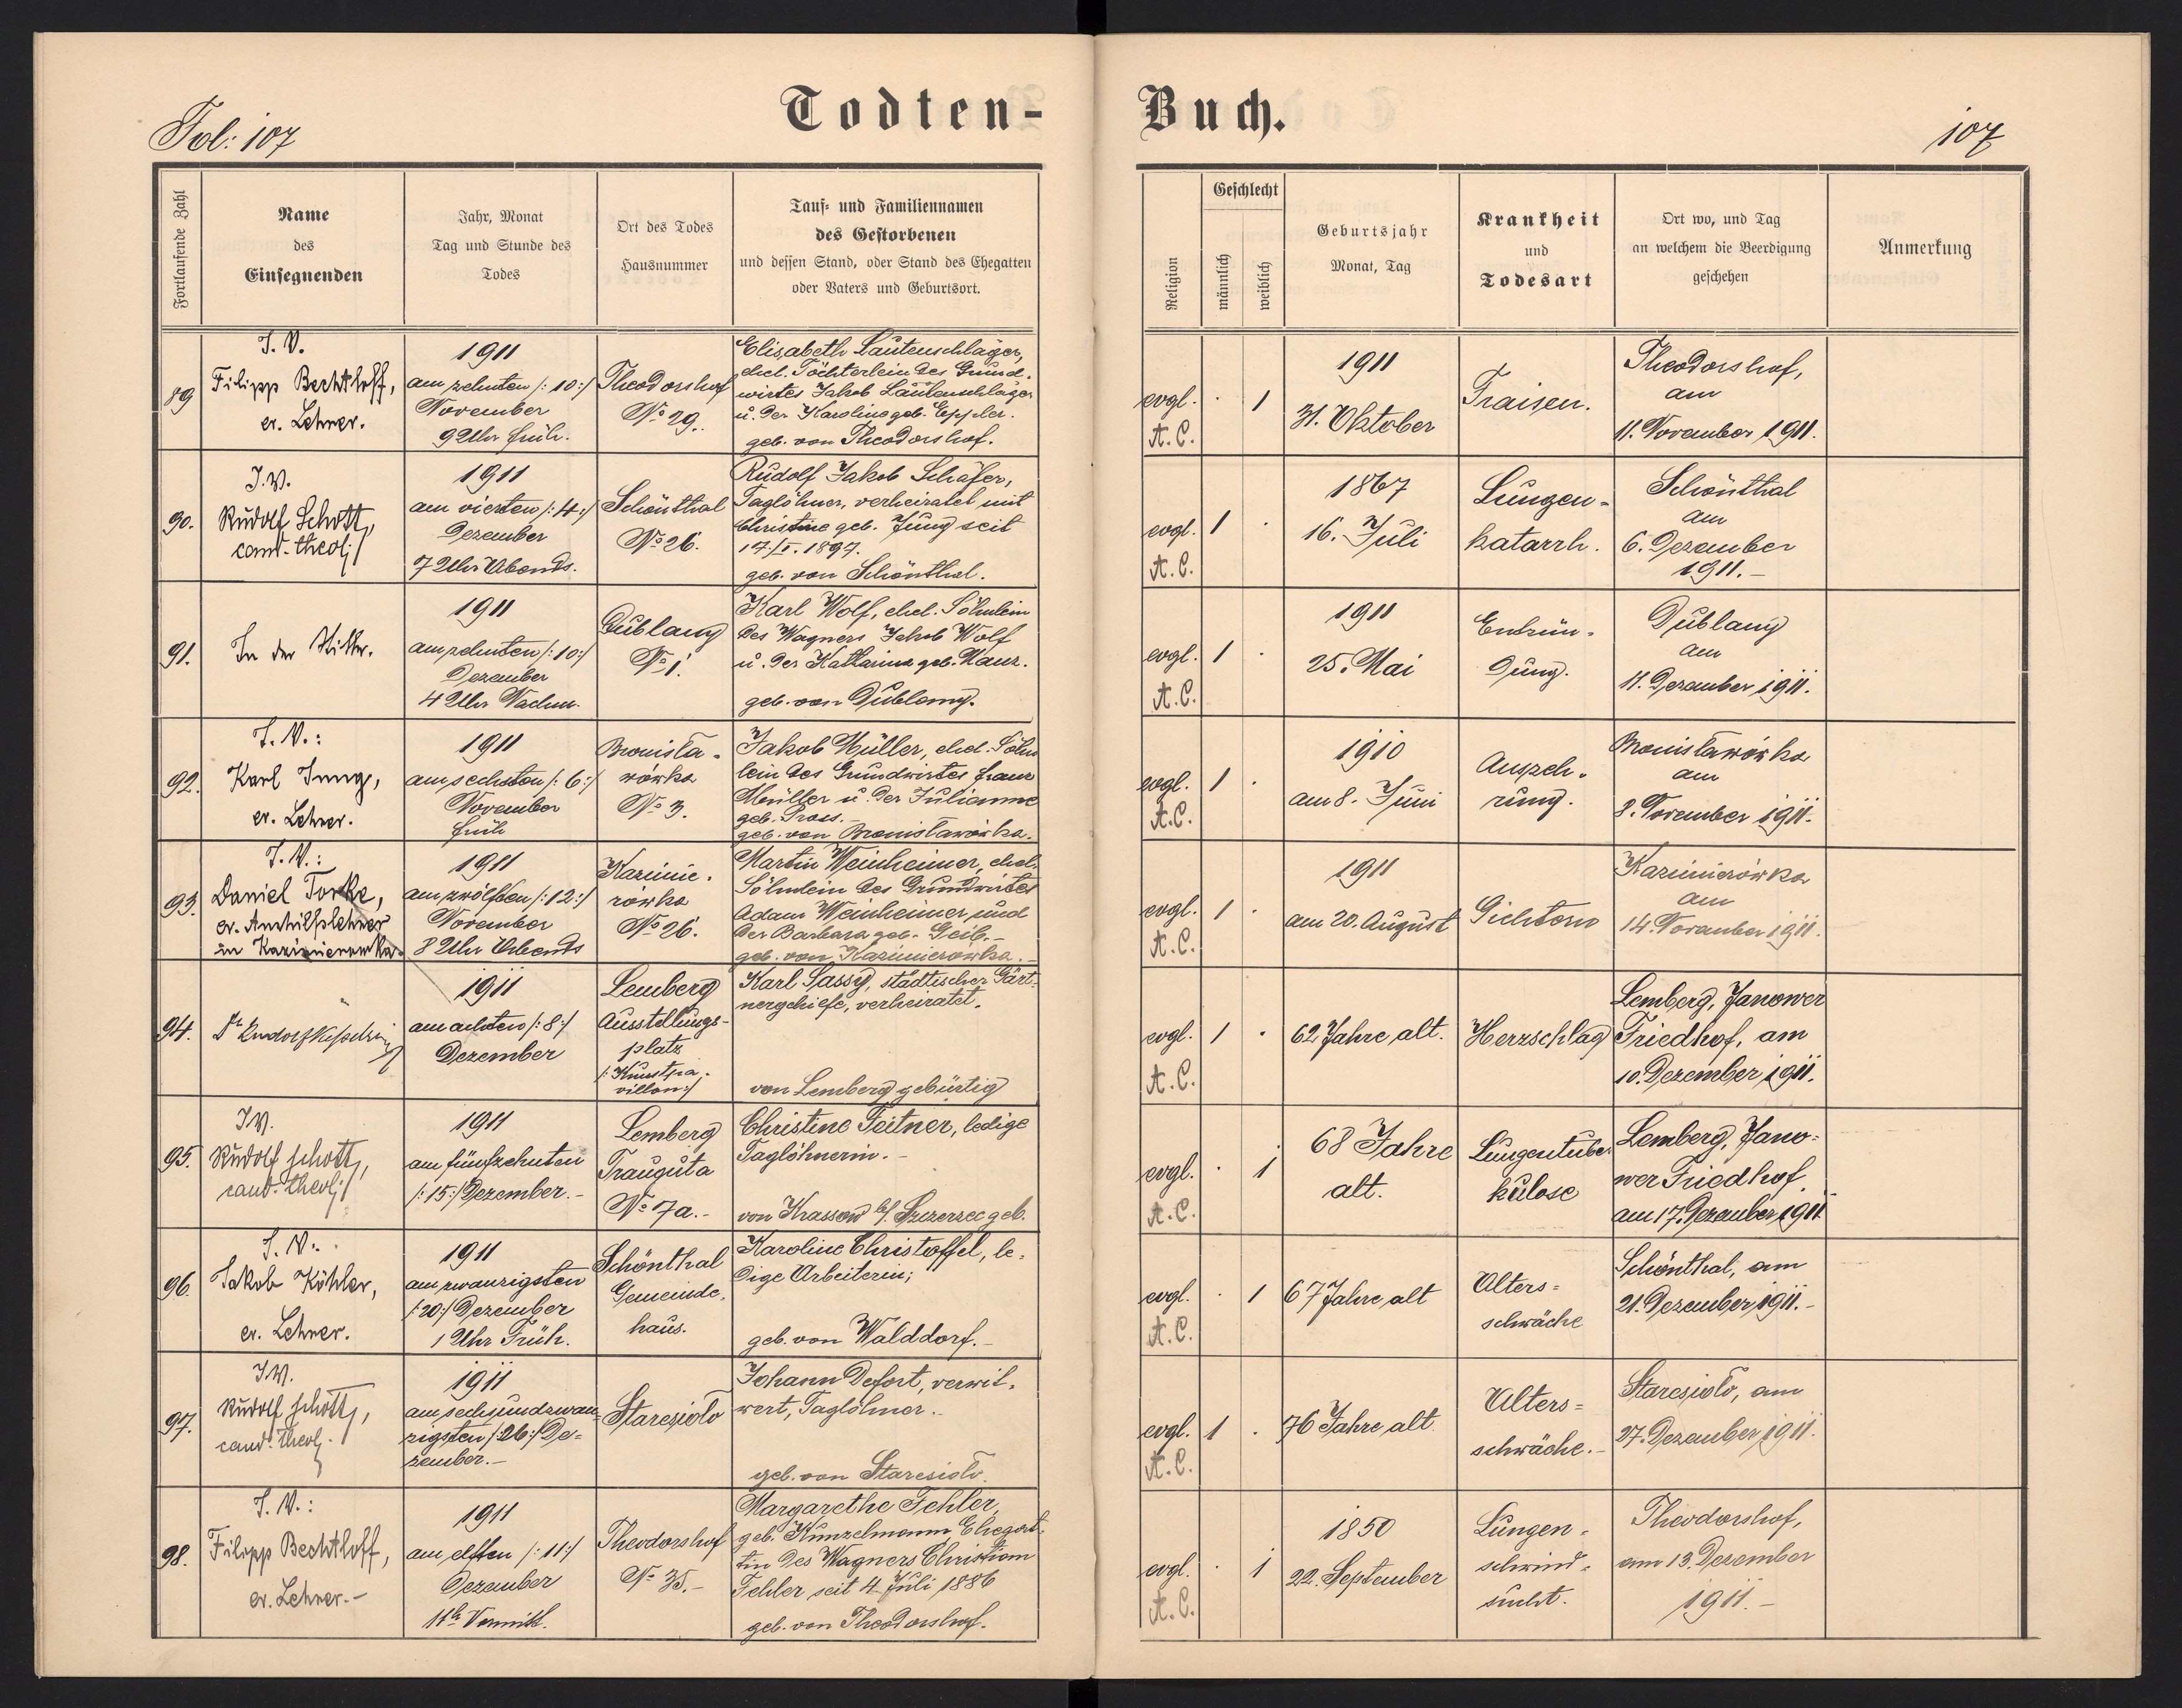 Fol: 107
Todten-
Buch.
107
Fortlaufende Zahl
Name
des
Einsegnenden
Jahr, Monat
Tag und Stunde des
Todes
Ort des Todes
Hausnummer
Tauf- und Familiennamen
des Gestorbenen
und dessen Stand, oder Stand des Ehegatten
oder Vaters und Geburtsort.
Religion
Geschlecht
männlich
weiblich
Geburtsjahr
Monat, Tag
Krankheit
und
Todesart
Ort wo, und Tag
an welchem die Beerdigung
geschehen
Anmerkung
89
I. V.
Filipp Bechtloff,
ev. Lehrer.
1911
am zehnten /:10:/
November
9 Uhr früh.
Theodorshof
No 29.
Elisabeth Lautenschläger,
ehel. Töchterlein des Grund-
wirtes Jakob Lautenschläger
u. der Karoline geb. Eppler.
geb. von Theodorshof.
evgl.
A.C.
· 1
1911
31. Oktober
Fraisen.
Theodorshof,
am
11. November 1911.
90.
I. V.
Rudolf Schott,
cand. theol.
1911
am vierten /:4:/
Dezember
7 Uhr Abends.
Schönthal
No 26.
Rudolf Jakob Schäfer,
Taglöhner, verheiratet mit
Christine geb. Jung seit
17./I. 1897.
geb. von Schönthal.
evgl.
A.C.
1 ·
1867
16. Juli
Lungen-
katarrh.
Schönthal
am
6. Dezember
1911.-
91.
In der Stille.
1911
am zehnten /:10:/
Dezember
4 Uhr Nachm.
Dublany
No 1.
Karl Wolf, ehel. Söhnlein
des Wagners Jakob Wolf
u. der Katharina geb. Manz.
geb. von Dublany.
evgl.
A.C.
1 ·
1911
25. Mai
Entzün-
dung.
Dublany
am
11. Dezember 1911.
92.
I. V.:
Karl Jung,
ev. Lehrer.
1911
am sechsten /:6:/
November
früh
Bronisła-
wówka
No 3.
Jakob Müller, ehel. Söhn
lein des Grundwirtes Franz
Müller u. der Julianne
geb. Pross.
geb. von Bronisławówka.
evgl.
A.C.
1 ·
1910
am 8. Juni
Auszeh-
rung.
Bronisławówka
am
8. November 1911.
93.
I. V.:
Daniel Torke,
ev. Aushilfslehrer
in Kazimierowka.
1911
am zwölften /:12:/
November
8 Uhr Abends
Kazimie-
rówka
No 26.
Martin Weinheimer, ehel.
Söhnlein des Grundwirtes
Adam Weinheimer und
der Barbara geb. Geib.-
geb. von Kazimierowka.-
evgl.
A.C.
1 ·
1911
am 20. August
Gichtern
Kazimierówka
am
14. November 1911.
94.
Dr Rudolf Kesselring
1911
am achten /:8:/
Dezember
Lemberg
Ausstellungs-
platz
/:Kunstpa-
villon:/
Karl Sassy, städtischer Gärt-
nergehilfe, verheiratet.
von Lemberg gebürtig
evgl.
A.C.
1 ·
62 Jahre alt.
Herzschlag
Lemberg, Janower
Friedhof, am
10. Dezember 1911.
95.
I. V.
Rudolf Schott,
cand. theol.
1911
am fünfzehnten
/:15:/ Dezember.-
Lemberg
Trauguta
No 7a.-
Christine Feitner, ledige
Taglöhnerin.-
von Krassow b/. Szczerzec geb.
evgl.
A.C.
· 1
68 Jahre
alt.
Lungentuber
kulose
Lemberg, Jano-
wer Friedhof
am 17. Dezember 1911
96.
I. V.:
Jakob Köhler,
ev. Lehrer.
1911
am zwanzigsten
/:20:/ Dezember
1 Uhr Früh.
Schönthal
Gemeinde-
haus.
Karoline Christoffel, le-
dige Arbeiterin;
geb. von Walddorf.-
evgl.
A.C.
· 1
67 Jahre alt
Alters-
schwäche
Schönthal, am
21. Dezember 1911.-
97.
I. V.
Rudolf Schott,
cand. theol.
1911
am sechsundzwan-
zigsten /:26:/ De-
zember.-
Staresioło
Johann Defort, verwit-
wert, Taglöhner.-
geb. von Staresioło.
evgl.
A.C.
1 ·
76 Jahre alt
Alters-
schwäche.-
Staresioło, am
27. Dezember 1911.
98.
I. V.:
Filipp Bechtloff,
ev. Lehrer.-
1911
am elften /:11:/
Dezember
11h Vormitt.
Theodorshof
No 35.-
Margarethe Fehler,
geb. Kunzelmann Ehegat-
tin des Wagners Christian
Fehler seit 4. Juli 1886
geb. von Theodorshof.
evgl.
A.C.
· 1
1850
22. September
Lungen-
schwind-
sucht.
Theodorshof,
am 13. Dezember
1911.-